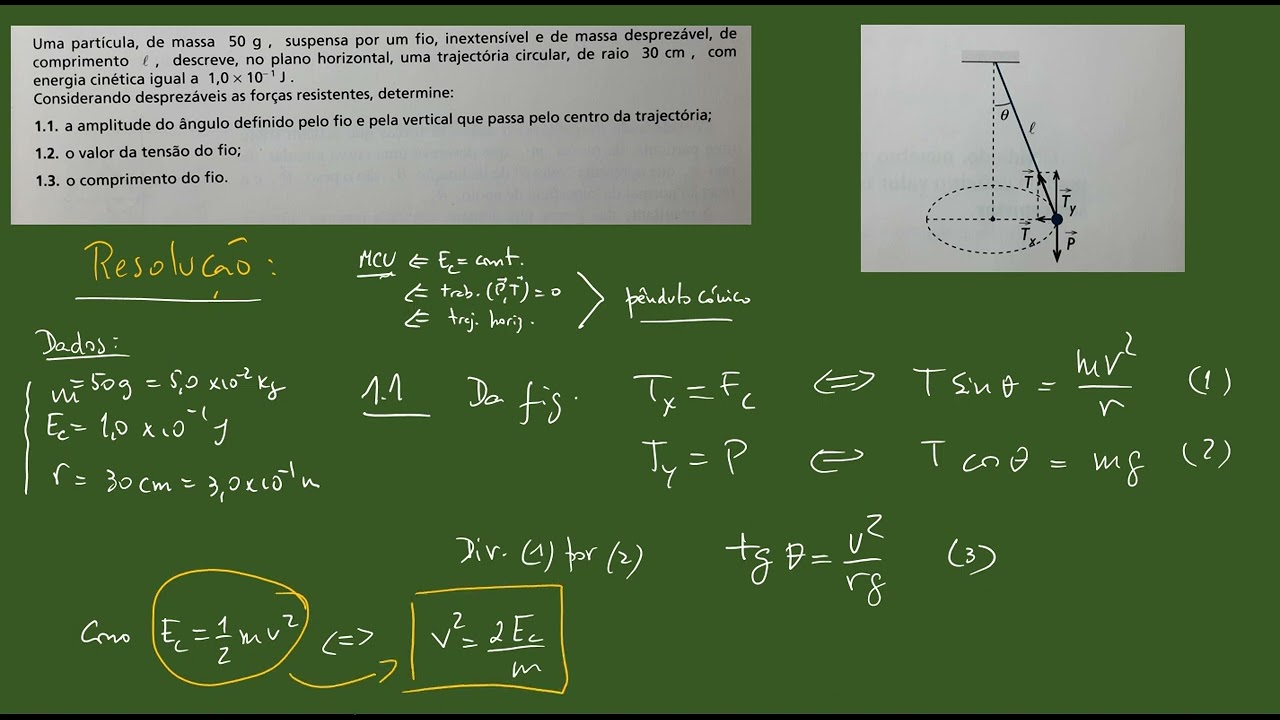 Uma partícula, de massa 50 g , suspensa por um fio, inextensível e de massa desprezável, de
comprimento ℓ , descreve, no plano horizontal, uma trajectória circular, de raio 30 cm , com
energia cinética igual a 1,0 × 10⁻¹ J .
Considerando desprezáveis as forças resistentes, determine:
1.1. a amplitude do ângulo definido pelo fio e pela vertical que passa pelo centro da trajectória;
1.2. o valor da tensão do fio;
1.3. o comprimento do fio.
θ
ℓ
T⃗
T⃗y
T⃗x
P⃗
Resolução:
MCU ⇐ Ec = const.
⇐ trab. (P⃗,T⃗) = 0
⇐ traj. horiz.
pêndulo cónico
Dados:
m = 50 g = 5,0 × 10⁻² kg
Ec = 1,0 × 10⁻¹ J
r = 30 cm = 3,0 × 10⁻¹ m
1.1 Da fig. Tx = Fc ⇔ T sin θ = mv²/r (1)
Ty = P ⇔ T cos θ = mg (2)
Div. (1) por (2) tg θ = v²/rg (3)
Como Ec = 1/2 mv² ⇔ v² = 2Ec/m